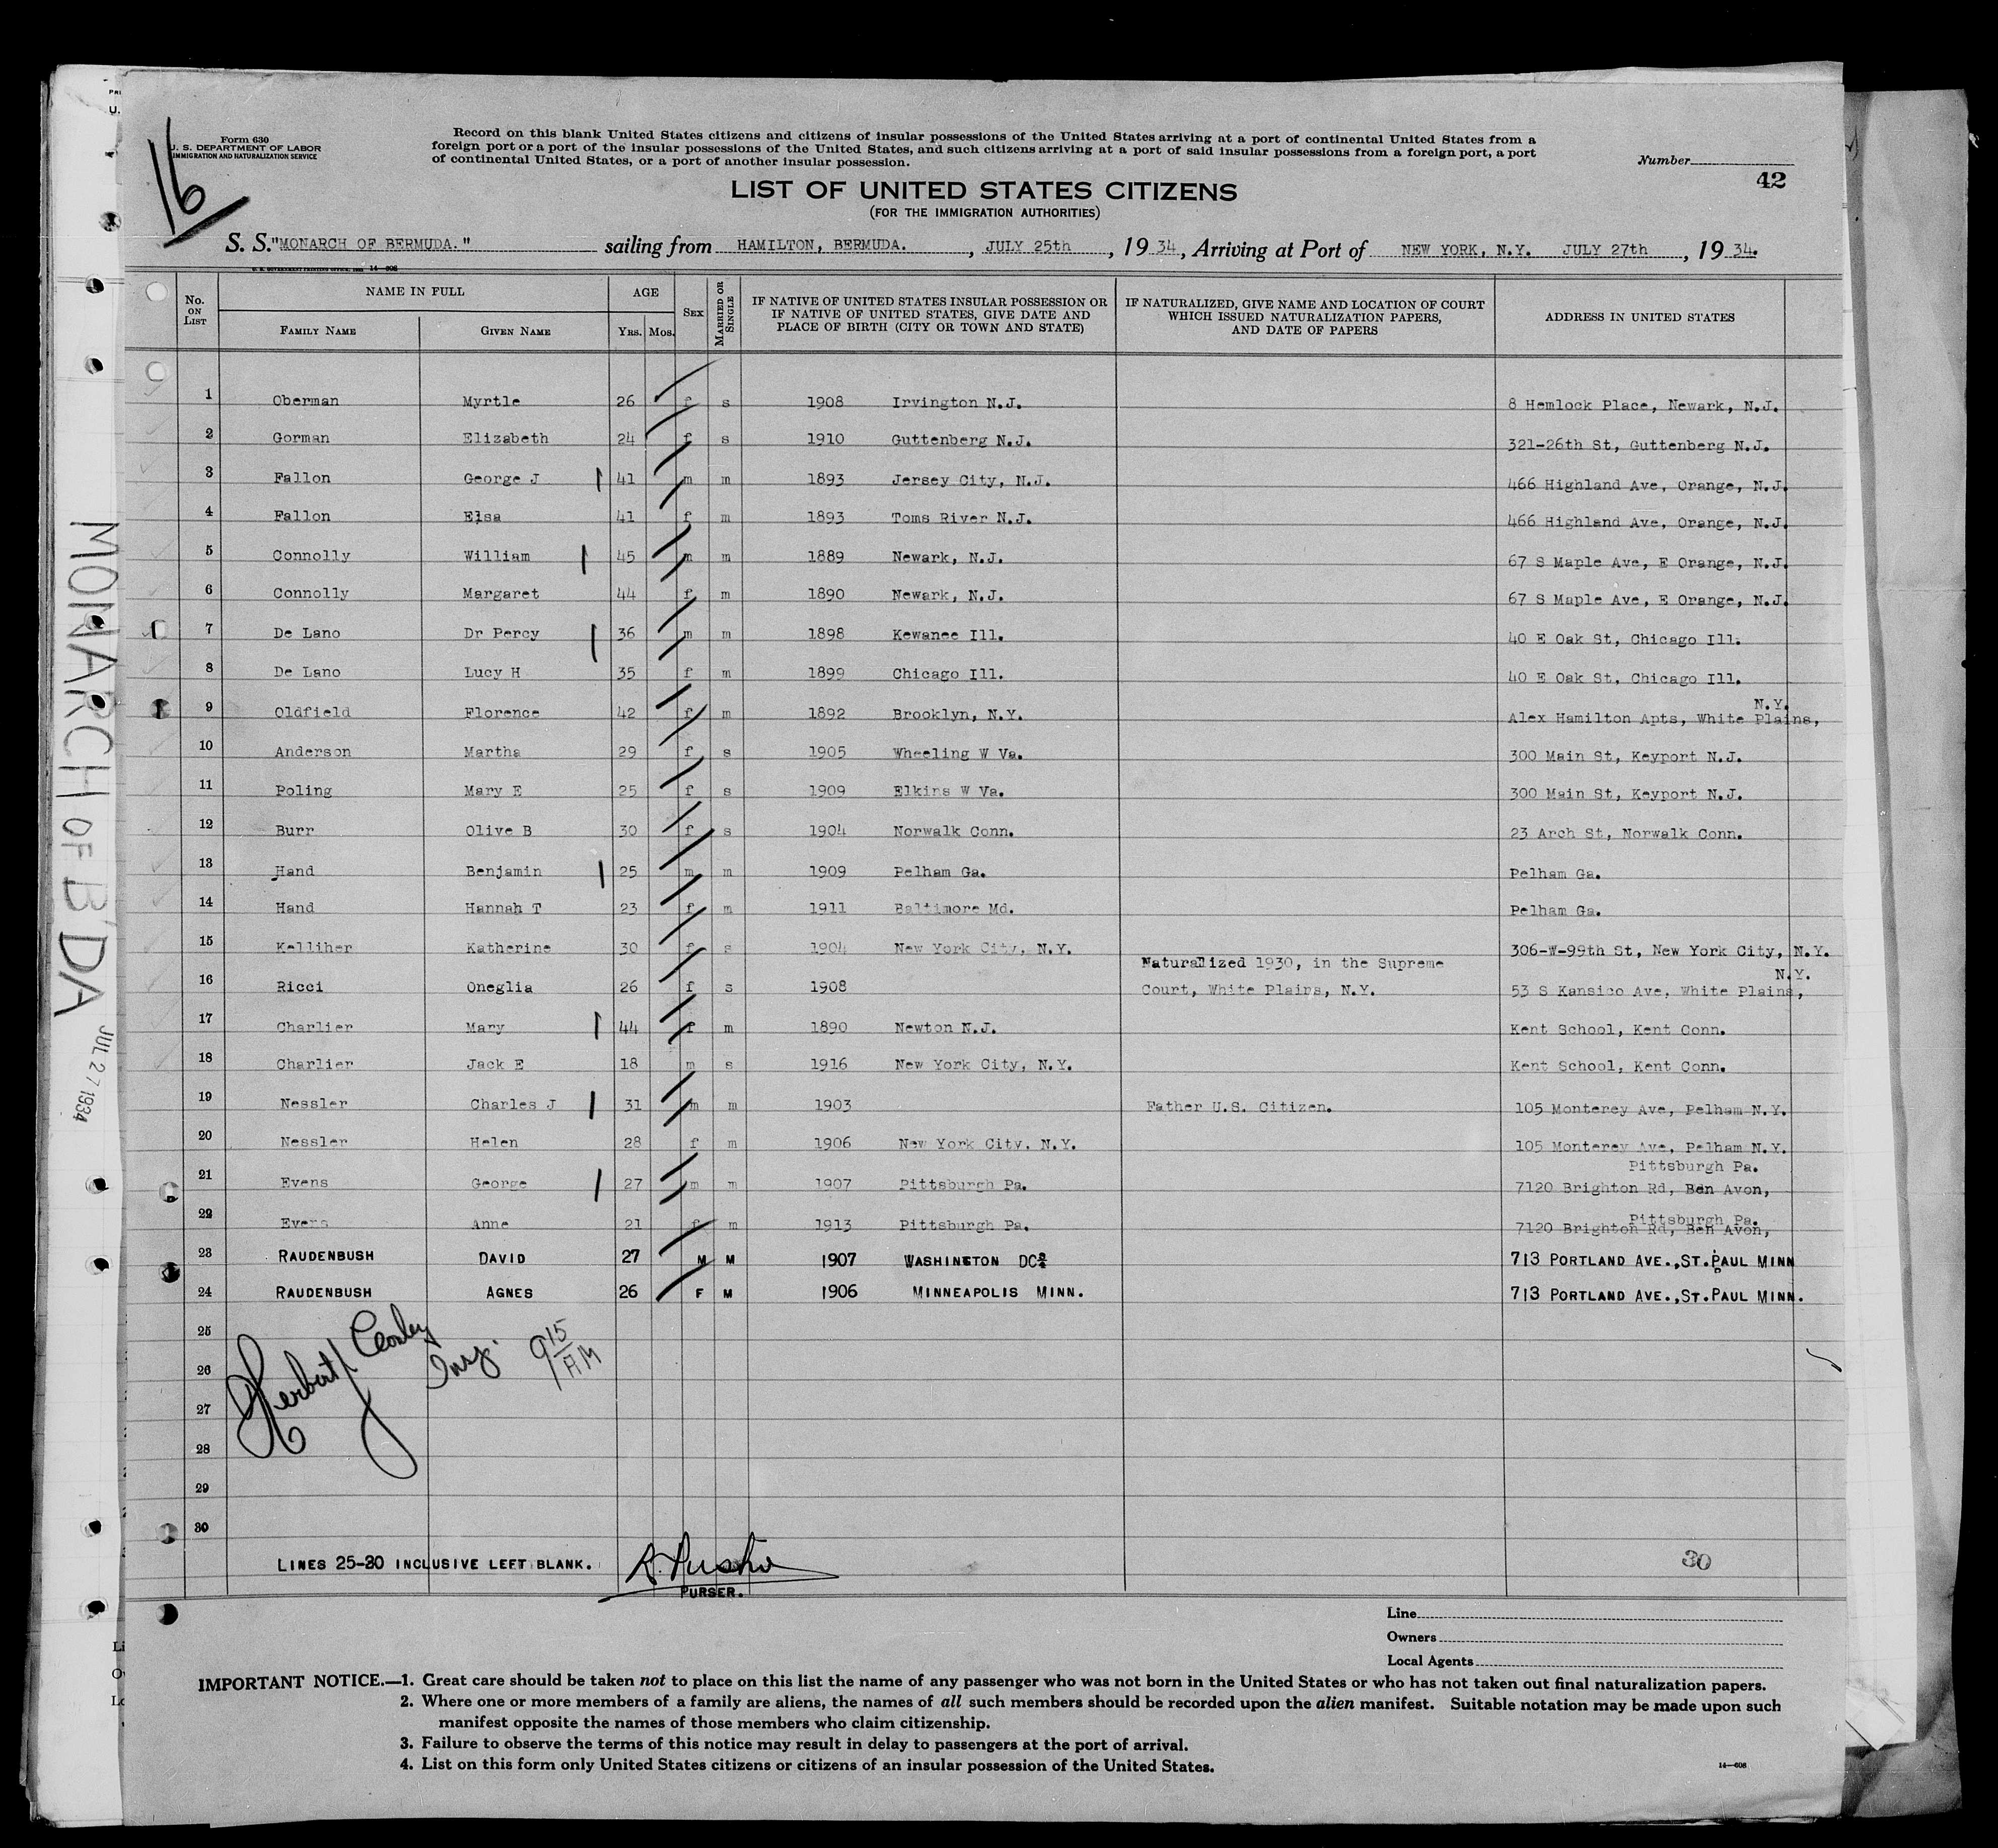 Form 630
U. S. DEPARTMENT OF LABOR
IMMIGRATION AND NATURALIZATION SERVICE
16
Record on this blank United States citizens and citizens of insular possessions of the United States arriving at a port of continental United States from a
foreign port or a port of the insular possessions of the United States, and such citizens arriving at a port of said insular possessions from a foreign port, a port
of continental United States, or a port of another insular possession.
Number
42
LIST OF UNITED STATES CITIZENS
(FOR THE IMMIGRATION AUTHORITIES)
S. S. "MONARCH OF BERMUDA." sailing from HAMILTON, BERMUDA. , JULY 25th , 19 34, Arriving at Port of NEW YORK, N.Y. JULY 27th , 19 34.
No. ON LIST NAME IN FULL FAMILY NAME GIVEN NAME AGE YRS. MOS. SEX MARRIED OR SINGLE IF NATIVE OF UNITED STATES INSULAR POSSESSION OR IF NATIVE OF UNITED STATES, GIVE DATE AND PLACE OF BIRTH (CITY OR TOWN AND STATE) IF NATURALIZED, GIVE NAME AND LOCATION OF COURT WHICH ISSUED NATURALIZATION PAPERS, AND DATE OF PAPERS ADDRESS IN UNITED STATES
1 Oberman Myrtle 26 f s 1908 Irvington N.J. 8 Hemlock Place, Newark, N.J.
2 Gorman Elizabeth 24 f s 1910 Guttenberg N.J. 321-26th St, Guttenberg N.J.
3 Fallon George J 41 m m 1893 Jersey City, N.J. 466 Highland Ave, Orange, N.J.
4 Fallon Elsa 41 f m 1893 Toms River N.J. 466 Highland Ave, Orange, N.J.
5 Connolly William 45 m m 1889 Newark, N.J. 67 S Maple Ave, E Orange, N.J.
6 Connolly Margaret 44 f m 1890 Newark, N.J. 67 S Maple Ave, E Orange, N.J.
7 De Lano Dr Percy 36 m m 1898 Kewanee Ill. 40 E Oak St, Chicago Ill.
8 De Lano Lucy H 35 f m 1899 Chicago Ill. 40 E Oak St, Chicago Ill.
9 Oldfield Florence 42 f m 1892 Brooklyn, N.Y. Alex Hamilton Apts, White Plains, N.Y.
10 Anderson Martha 29 f s 1905 Wheeling W Va. 300 Main St, Keyport N.J.
11 Poling Mary E 25 f s 1909 Elkins W Va. 300 Main St, Keyport N.J.
12 Burr Olive B 30 f s 1904 Norwalk Conn. 23 Arch St, Norwalk Conn.
13 Hand Benjamin 25 m m 1909 Pelham Ga. Pelham Ga.
14 Hand Hannah T 23 f m 1911 Baltimore Md. Pelham Ga.
15 Kelliher Katherine 30 f s 1904 New York City, N.Y. 306-W-99th St, New York City, N.Y.
16 Ricci Oneglia 26 f s 1908 Naturalized 1930, in the Supreme Court, White Plains, N.Y. 53 S Kansico Ave, White Plains, N.Y.
17 Charlier Mary 44 f m 1890 Newton N.J. Kent School, Kent Conn.
18 Charlier Jack E 18 m s 1916 New York City, N.Y. Kent School, Kent Conn.
19 Nessler Charles J 31 m m 1903 Father U.S. Citizen. 105 Monterey Ave, Pelham N.Y.
20 Nessler Helen 28 f m 1906 New York City, N.Y. 105 Monterey Ave, Pelham N.Y.
21 Evens George 27 m m 1907 Pittsburgh Pa. 7120 Brighton Rd, Ben Avon, Pittsburgh Pa.
22 Evens Anne 21 f m 1913 Pittsburgh Pa. 7120 Brighton Rd, Ben Avon, Pittsburgh Pa.
23 RAUDENBUSH DAVID 27 M M 1907 WASHINGTON DC 713 PORTLAND AVE., ST. PAUL MINN
24 RAUDENBUSH AGNES 26 F M 1906 MINNEAPOLIS MINN. 713 PORTLAND AVE., ST. PAUL MINN.
25
26
27
28
29
30
Herbert 9 15 AM
LINES 25-30 INCLUSIVE LEFT BLANK.
PURSER.
30
Line
Owners
Local Agents
IMPORTANT NOTICE.—1. Great care should be taken not to place on this list the name of any passenger who was not born in the United States or who has not taken out final naturalization papers.
2. Where one or more members of a family are aliens, the names of all such members should be recorded upon the alien manifest. Suitable notation may be made upon such
manifest opposite the names of those members who claim citizenship.
3. Failure to observe the terms of this notice may result in delay to passengers at the port of arrival.
4. List on this form only United States citizens or citizens of an insular possession of the United States.
14—608
MONARCH OF B'DA JUL 27 1934